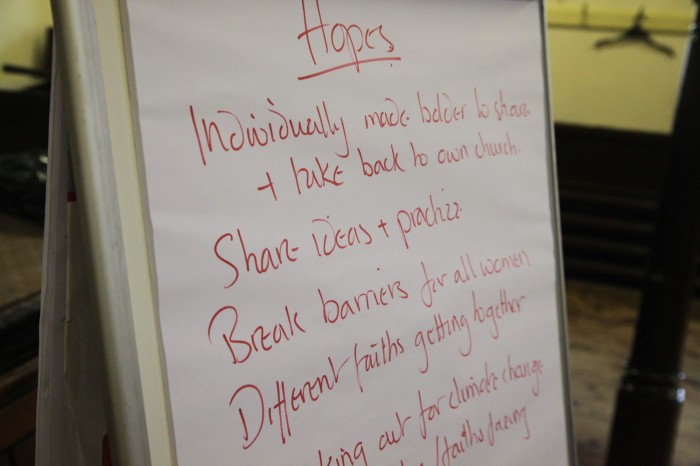 Hopes
Individually made bolder to share
+ take back to own church.
Share ideas + practice
Break barriers for all women
Different faiths getting together
out for climate change
/faiths facing